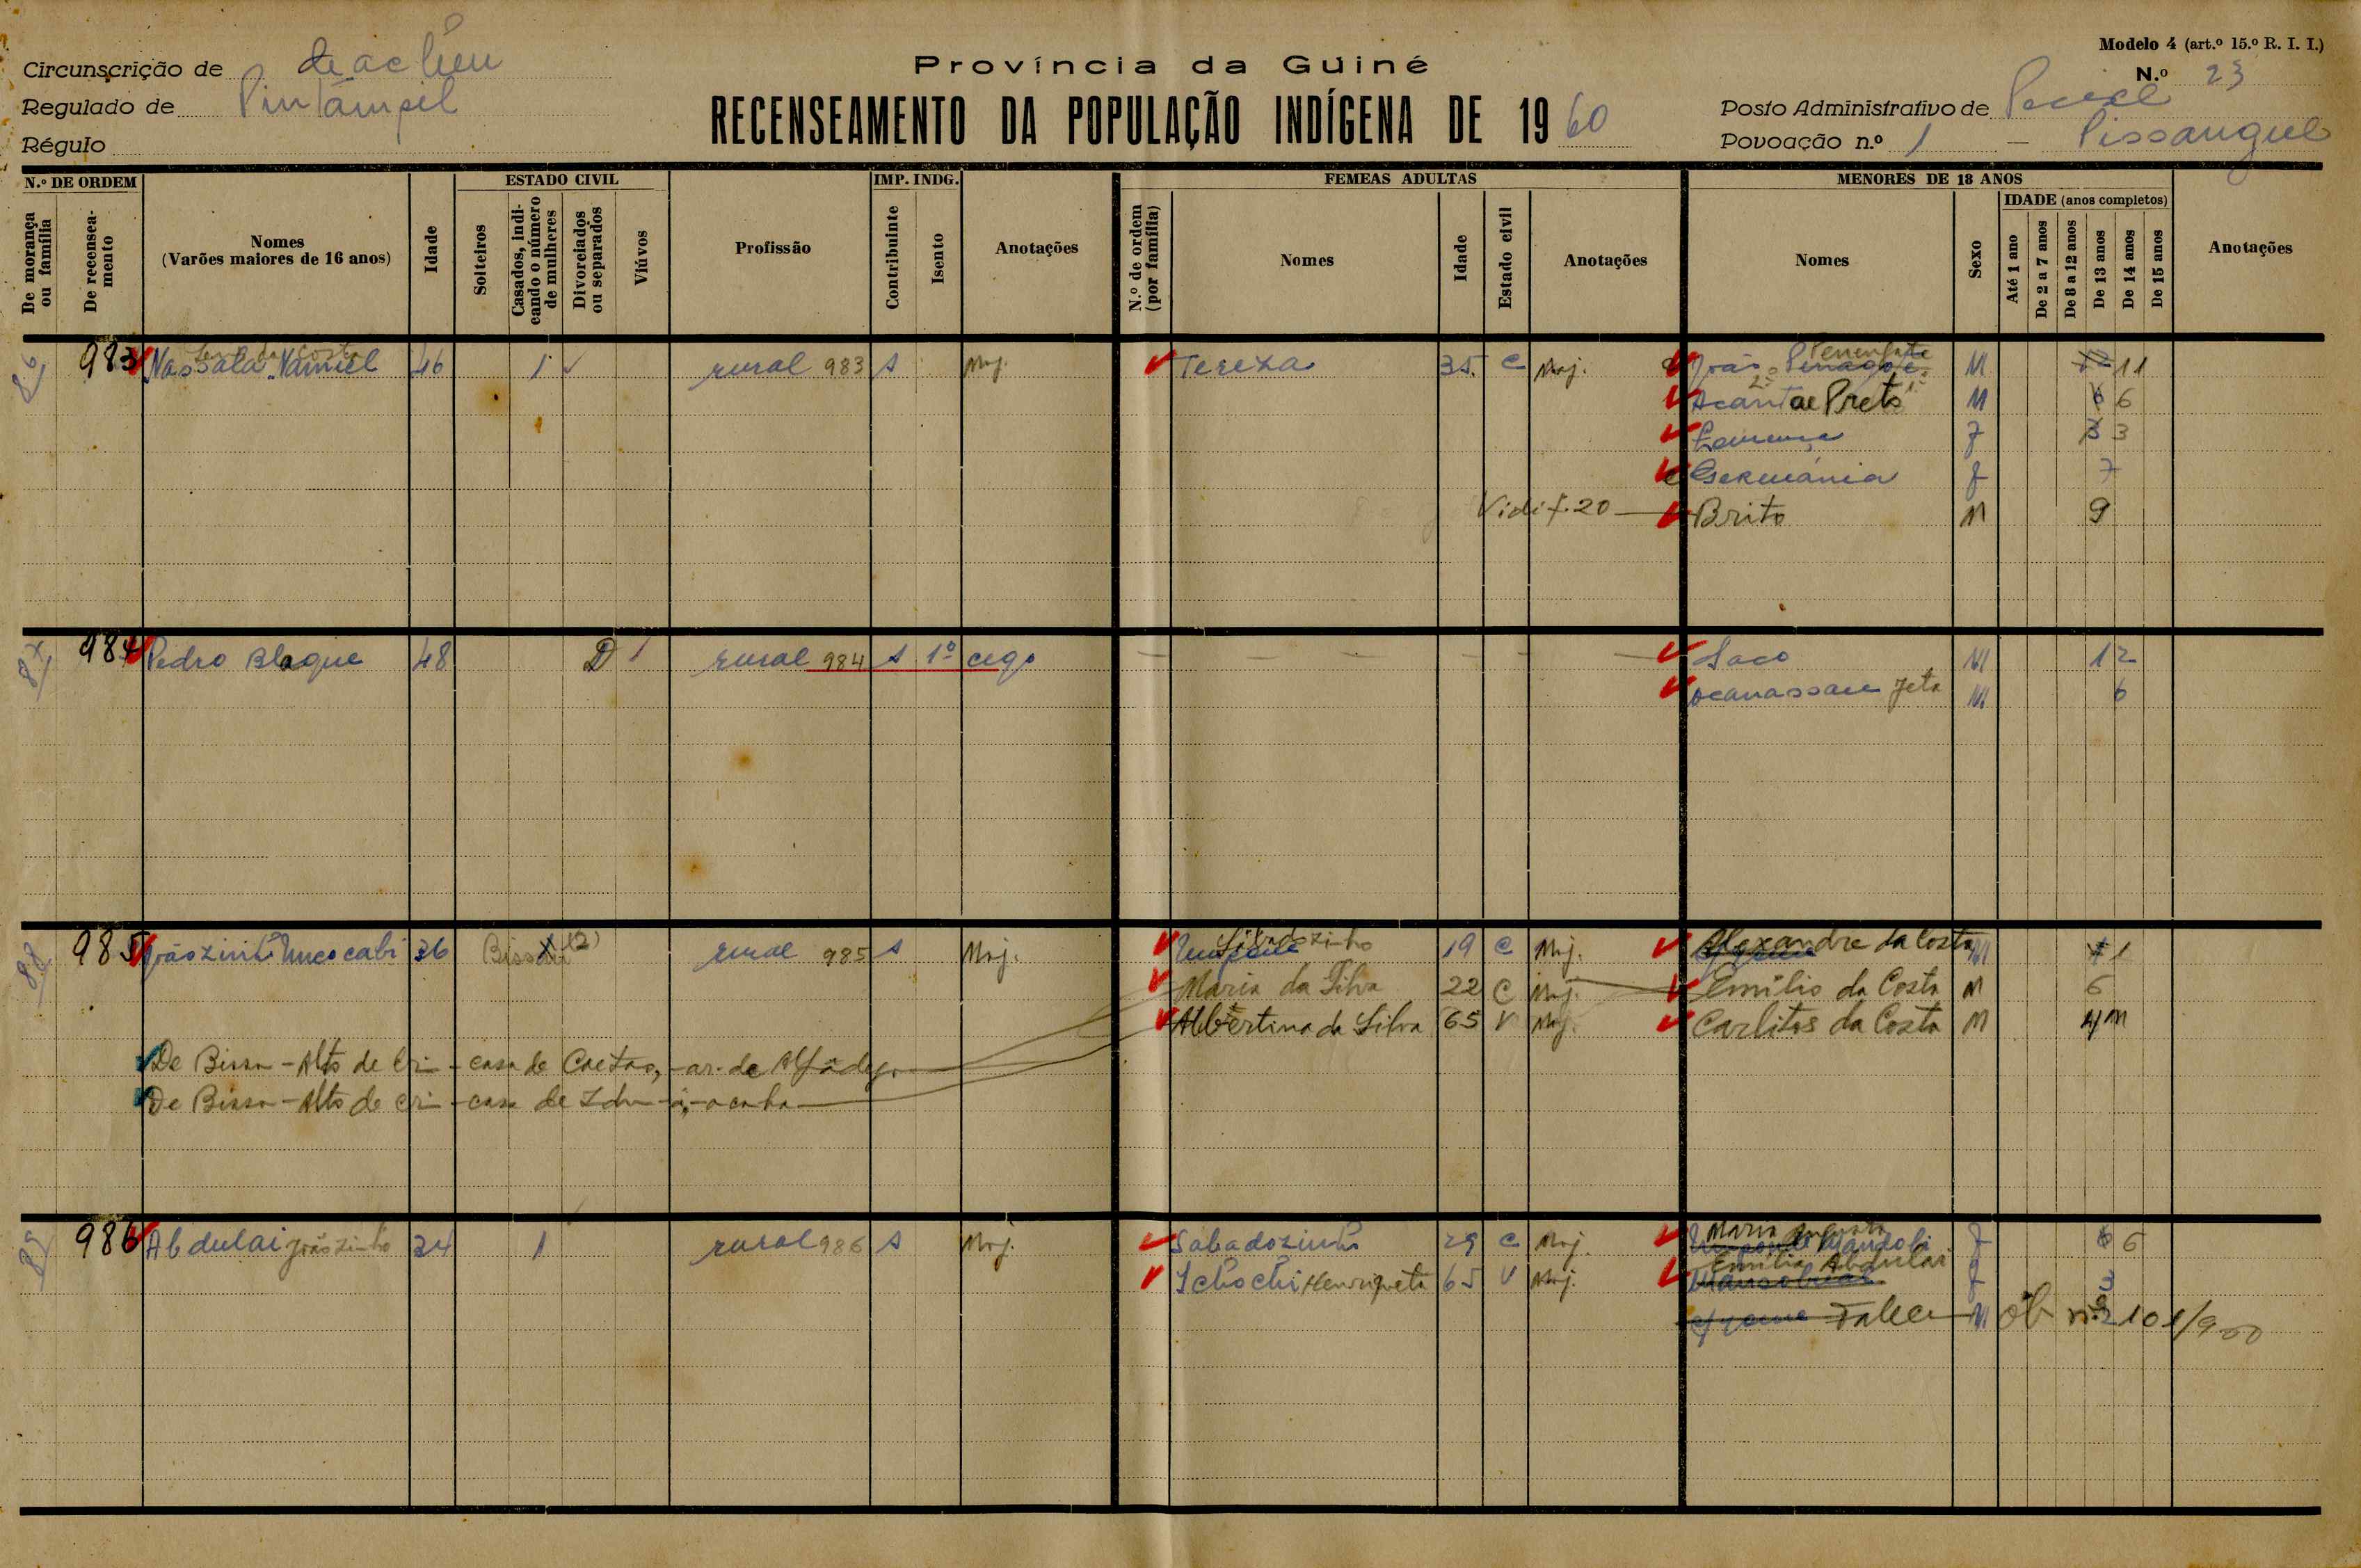 Modelo 4 (art.º 15.º R. I. I.)
Circunscrição de
Província da Guiné
N.º 23
Regulado de Pintampil
RECENSEAMENTO DA POPULAÇÃO INDÍGENA DE 1960
Posto Administrativo de
Régulo
Povoação n.º 1 — Pissangue
N.º DE ORDEM
De morança ou família
De recenseamento
Nomes
(Varões maiores de 16 anos)
Idade
ESTADO CIVIL
Solteiros
Casados, indicando o número de mulheres
Divorciados ou separados
Viúvos
Profissão
IMP. INDG.
Contribuinte
Isento
Anotações
FEMEAS ADULTAS
N.º de ordem (por família)
Nomes
Idade
Estado civil
Anotações
MENORES DE 18 ANOS
Nomes
Sexo
IDADE (anos completos)
Até 1 ano
De 2 a 7 anos
De 8 a 12 anos
De 13 anos
De 14 anos
De 15 anos
Anotações
86 983 Nassala Namiel 46 1 rural 983 s Maj. Tereza 35 C Maj. João M 11
Preto M 6 6
F 3 3
Germánia F 7
Vidi f. 20 — Brito M 9
87 984 Pedro Blaque 48 D rural 984 s 1º cego — — — — — — Saco M 12
Jeta M 6
88 985 36 (2) rural 985 s Maj. Sabadozinho 19 C Maj. Alexandre da Costa M 1
Maria da Silva 22 C Maj. Emilio da Costa M 6
Albertina da Silva 65 V Maj. Carlitos da Costa M 4 M
De Bissa — Alto de Cri — casa de Caetano,
De Bissa — Alto de Cri — casa de
89 986 Abdulai Joãozinho 34 1 rural 986 s Maj. Sabadozinho 29 C Maj. Maria Augusta F 6 6
Henriqueta 65 V Maj. Emilia Abdulai F 3
Falec M ob nº 101/960